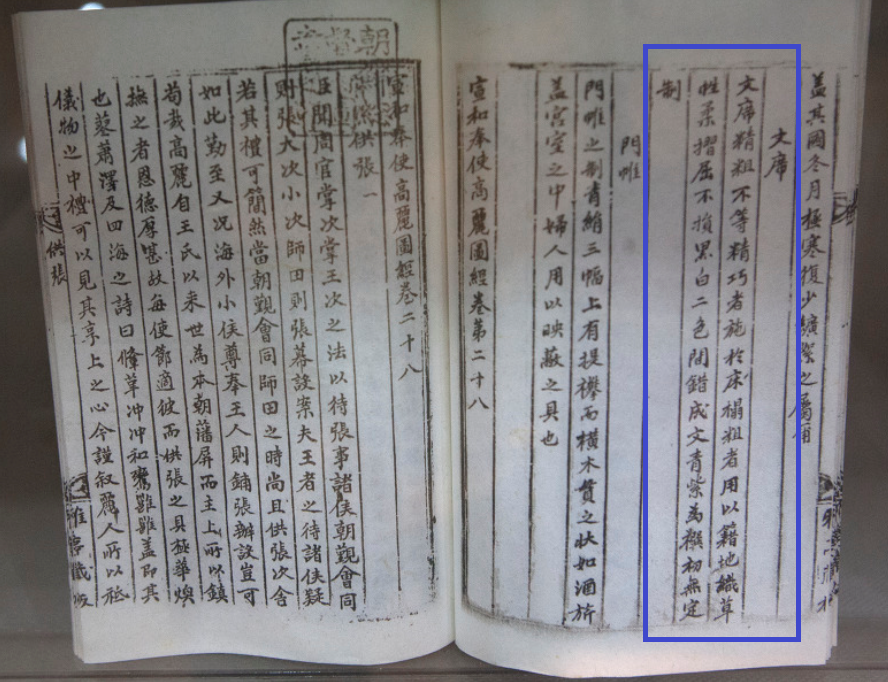 蓋其國冬月極寒復少纊絮之屬爾
文席
文席精粗不等精巧者施於床榻粗者用以籍地織草
性柔摺屈不損黑白二色間錯成文青紫為襈初無定
制
門帷
門帷之制青絹三幅上有提襻而橫木貫之狀如酒旂
蓋宮室之中婦人用以映蔽之具也
宣和奉使高麗圖經卷第二十八
宣和奉使高麗圖經卷二十八
供張一
臣聞周官掌次掌王次之法以待張事諸侯朝覲會同
則張大次小次師田則張幕設案夫王者之待諸侯疑
若其禮可簡然當朝覲會同師田之時尚且供張次舍
如此勤至又況海外小侯尊奉王人則鋪張辦設豈可
苟哉高麗自王氏以來世為本朝藩屏而主上所以鎮
撫之者恩德厚甚故每使節適彼而供張之具極華煥
也蓼蕭澤及四海之詩曰鞗革冲冲和鸞雝雝蓋即其
儀物之中禮可以見其享上之心今謹敘麗人所以祗
供張